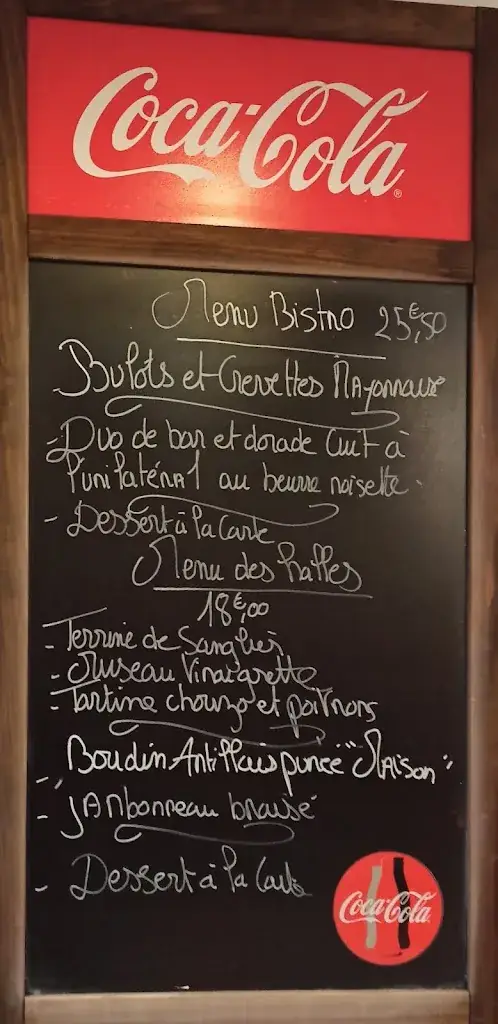 Coca-Cola
Menu Bistro 25€,50
Bulots et Crevettes Mayonnaise
- Duo de bar et dorade Cuit à
l'unilatéral au beurre noisette.
- Dessert à la Carte
Menu des halles
18€,00
- Terrine de Sanglier
- Museau Vinaigrette
- Tartine chorizo et poivrons
- Boudin Antillais purée "Maison"
- Jambonneau braisé
- Dessert à la Carte
Coca-Cola